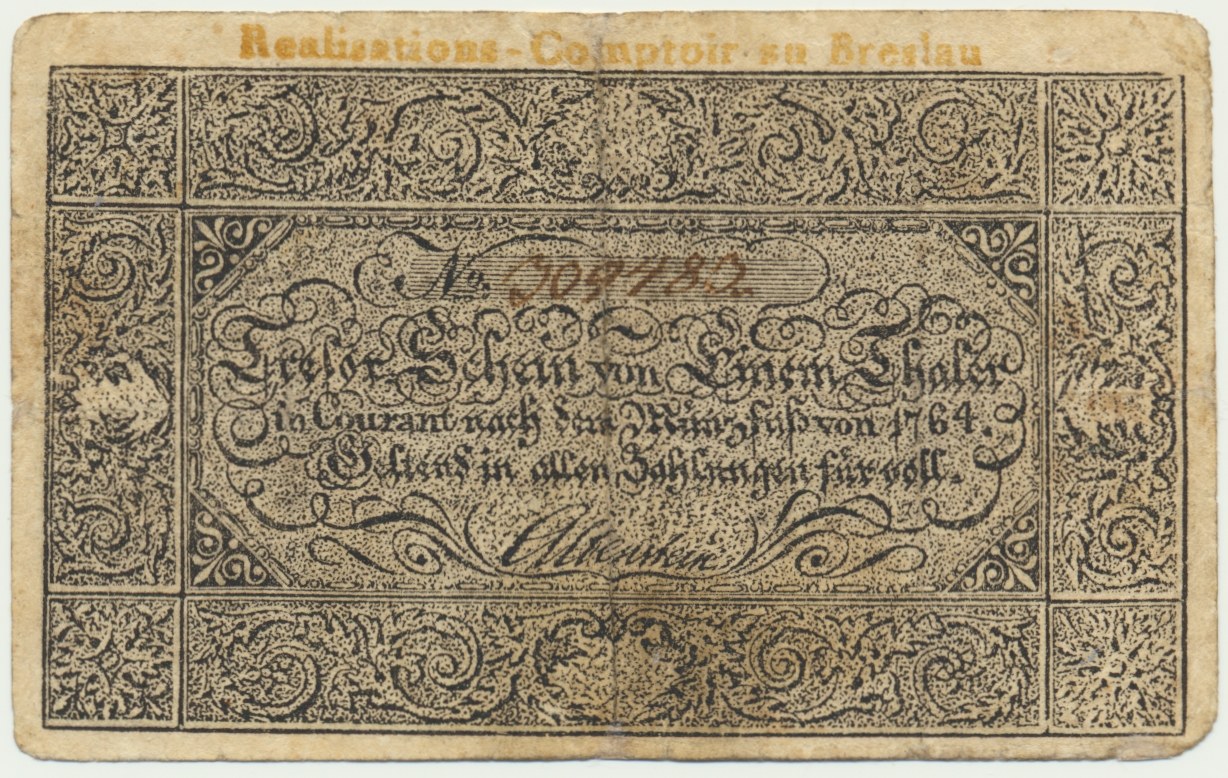 Realisations-Comptoir zu Breslau
No. 308782
Tresor-Schein von Einem Thaler
in Courant nach dem Münzfuß von 1764.
Geltend in allen Zahlungen für voll.
Altenstein